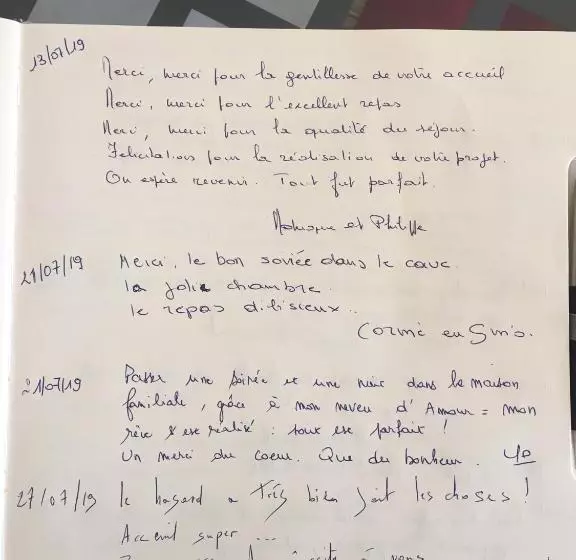 13/07/19
Merci, merci pour la gentillesse de votre accueil
Merci, merci pour l'excellent repas
Merci, merci pour la qualité du séjour.
Félicitations pour la réalisation de votre projet.
On espère revenir. Tout fut parfait.
Monique et Philippe
21/07/19 Merci, le bon soirée dans le cave
la jolie chambre.
le repas délisieux..
21/07/19 Passer une soirée et une nuit dans la maison
familiale, grâce à mon neveu d'Amour = mon
rêve s'est réalisé : tout est parfait !
Un merci du coeur. Que du bonheur.
27/07/19 le hasard a très bien fait les choses !
Accueil super ...